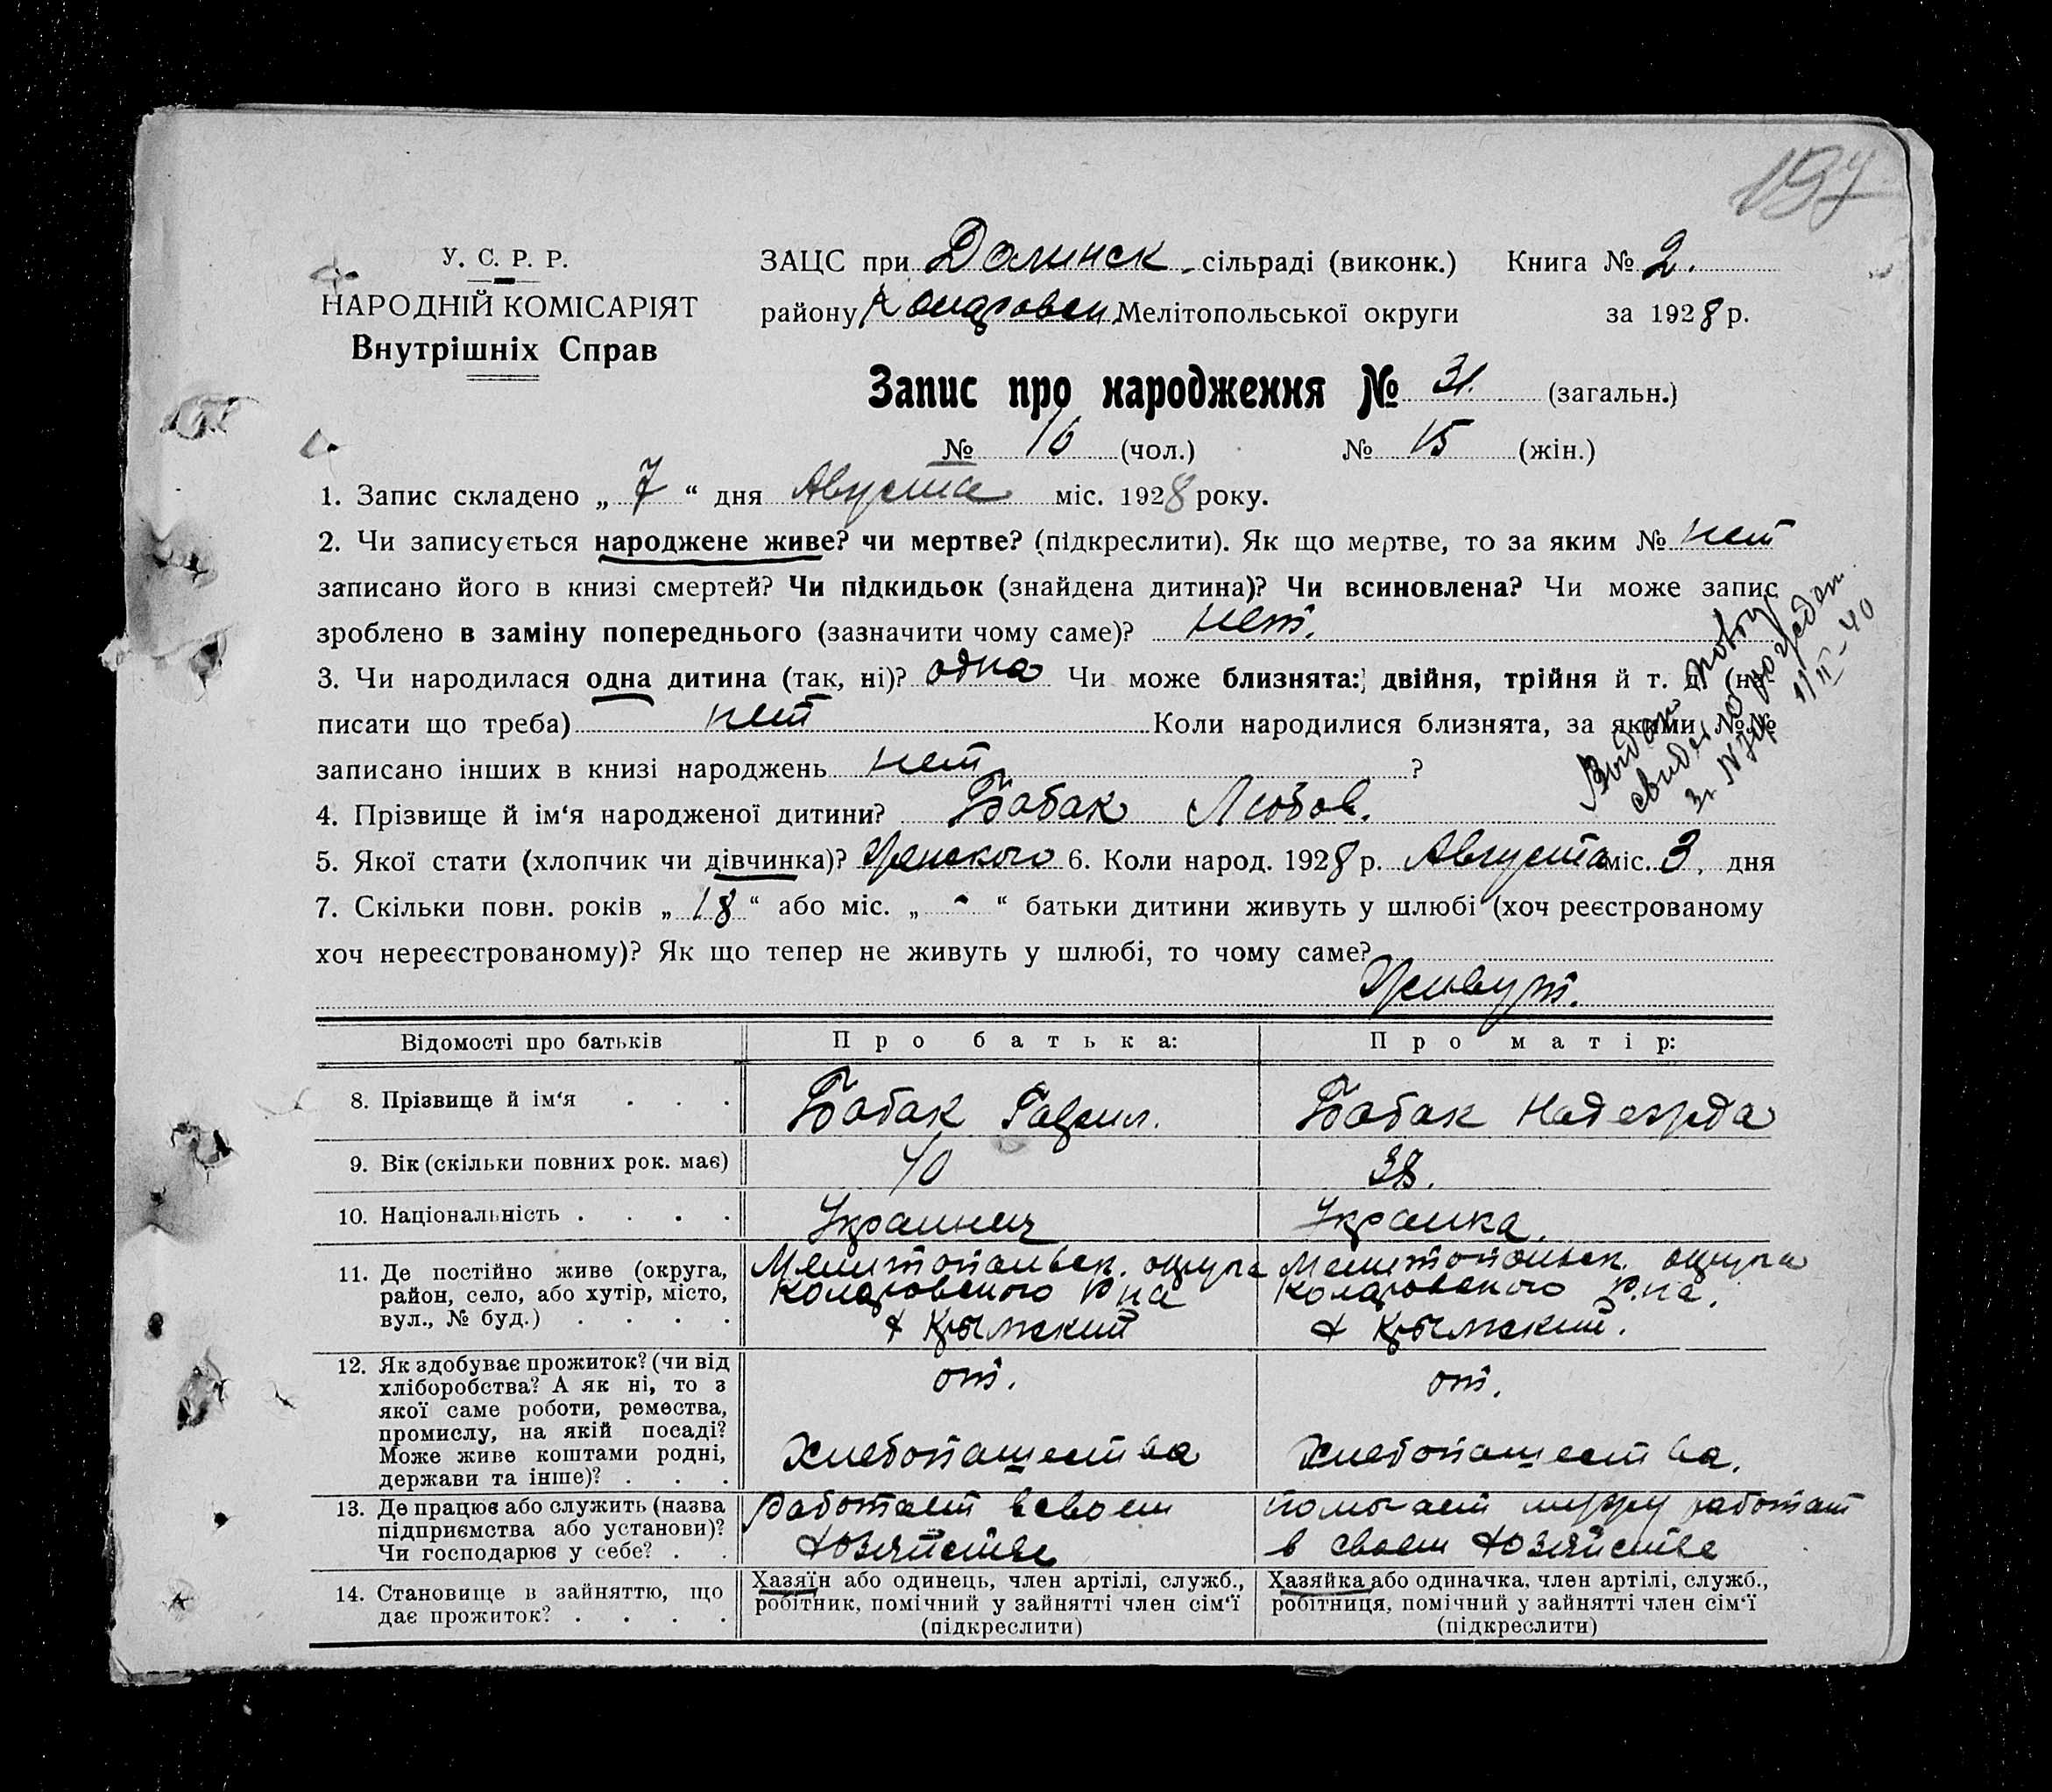 194
У. С. Р. Р.
НАРОДНІЙ КОМІСАРІЯТ
Внутрішніх Справ
ЗАЦС при Долинск. сільраді (виконк.) Книга № 2.
району Коларовск. Мелітопольської округи за 1928 р.
Запис про народження № 31. (загальн.)
№ 16 (чол.) № 15 (жін.)
1. Запис складено „ 7 “ дня Августа міс. 1928 року.
2. Чи записується народжене живе? чи мертве? (підкреслити). Як що мертве, то за яким № нет
записано його в книзі смертей? Чи підкидьок (знайдена дитина)? Чи всиновлена? Чи може запис
зроблено в заміну попереднього (зазначити чому саме)? нет.
3. Чи народилася одна дитина (так, ні)? одна Чи може близнята: двійня, трійня й т. д. (на-
писати що треба) нет Коли народилися близнята, за якими №№
записано інших в книзі народжень нет ?
4. Прізвище й ім‘я народженої дитини? Бабак Любов.
5. Якої стати (хлопчик чи дівчинка)? Женского 6. Коли народ. 1928 р. Августа міс. 3, дня
7. Скільки повн. років „ 18 “ або міс. „ - “ батьки дитини живуть у шлюбі (хоч реєстрованому
хоч нереєстрованому)? Як що тепер не живуть у шлюбі, то чому саме?
Живут.
Выдано повтор
свидет. о рожден
11/II-40
Відомості про батьків Про батька: Про матір:
8. Прізвище й ім‘я . . . Бабак Гаврил. Бабак Надежда
9. Вік (скільки повних рок. має) 40 38.
10. Національність . . . . Украинец Украинка.
11. Де постійно живе (округа, Мелитопольск. округа Мелитопольск. округа
район, село, або хутір, місто, Коларовского Р-на Коларовского Р-на.
вул., № буд.) . . . . х Крымский х Крымский.
12. Як здобуває прожиток? (чи від от. от.
хліборобства? А як ні, то з
якої саме роботи, ремества,
промислу, на якій посаді?
Може живе коштами родні, Хлебопашества Хлебопашества.
держави та інше)? . . .
13. Де працює або служить (назва Работает в своем помогает мужу работат
підприємства або установи)? хозяйстве в своем хозяйстве
Чи господарює у себе? . .
14. Становище в зайняттю, що Хазяїн або одинець, член артілі, служб., Хазяйка або одиначка, член артілі, служб.,
дає прожиток? . . . . робітник, помічний у зайнятті член сім‘ї робітниця, помічний у зайнятті член сім‘ї
(підкреслити) (підкреслити)